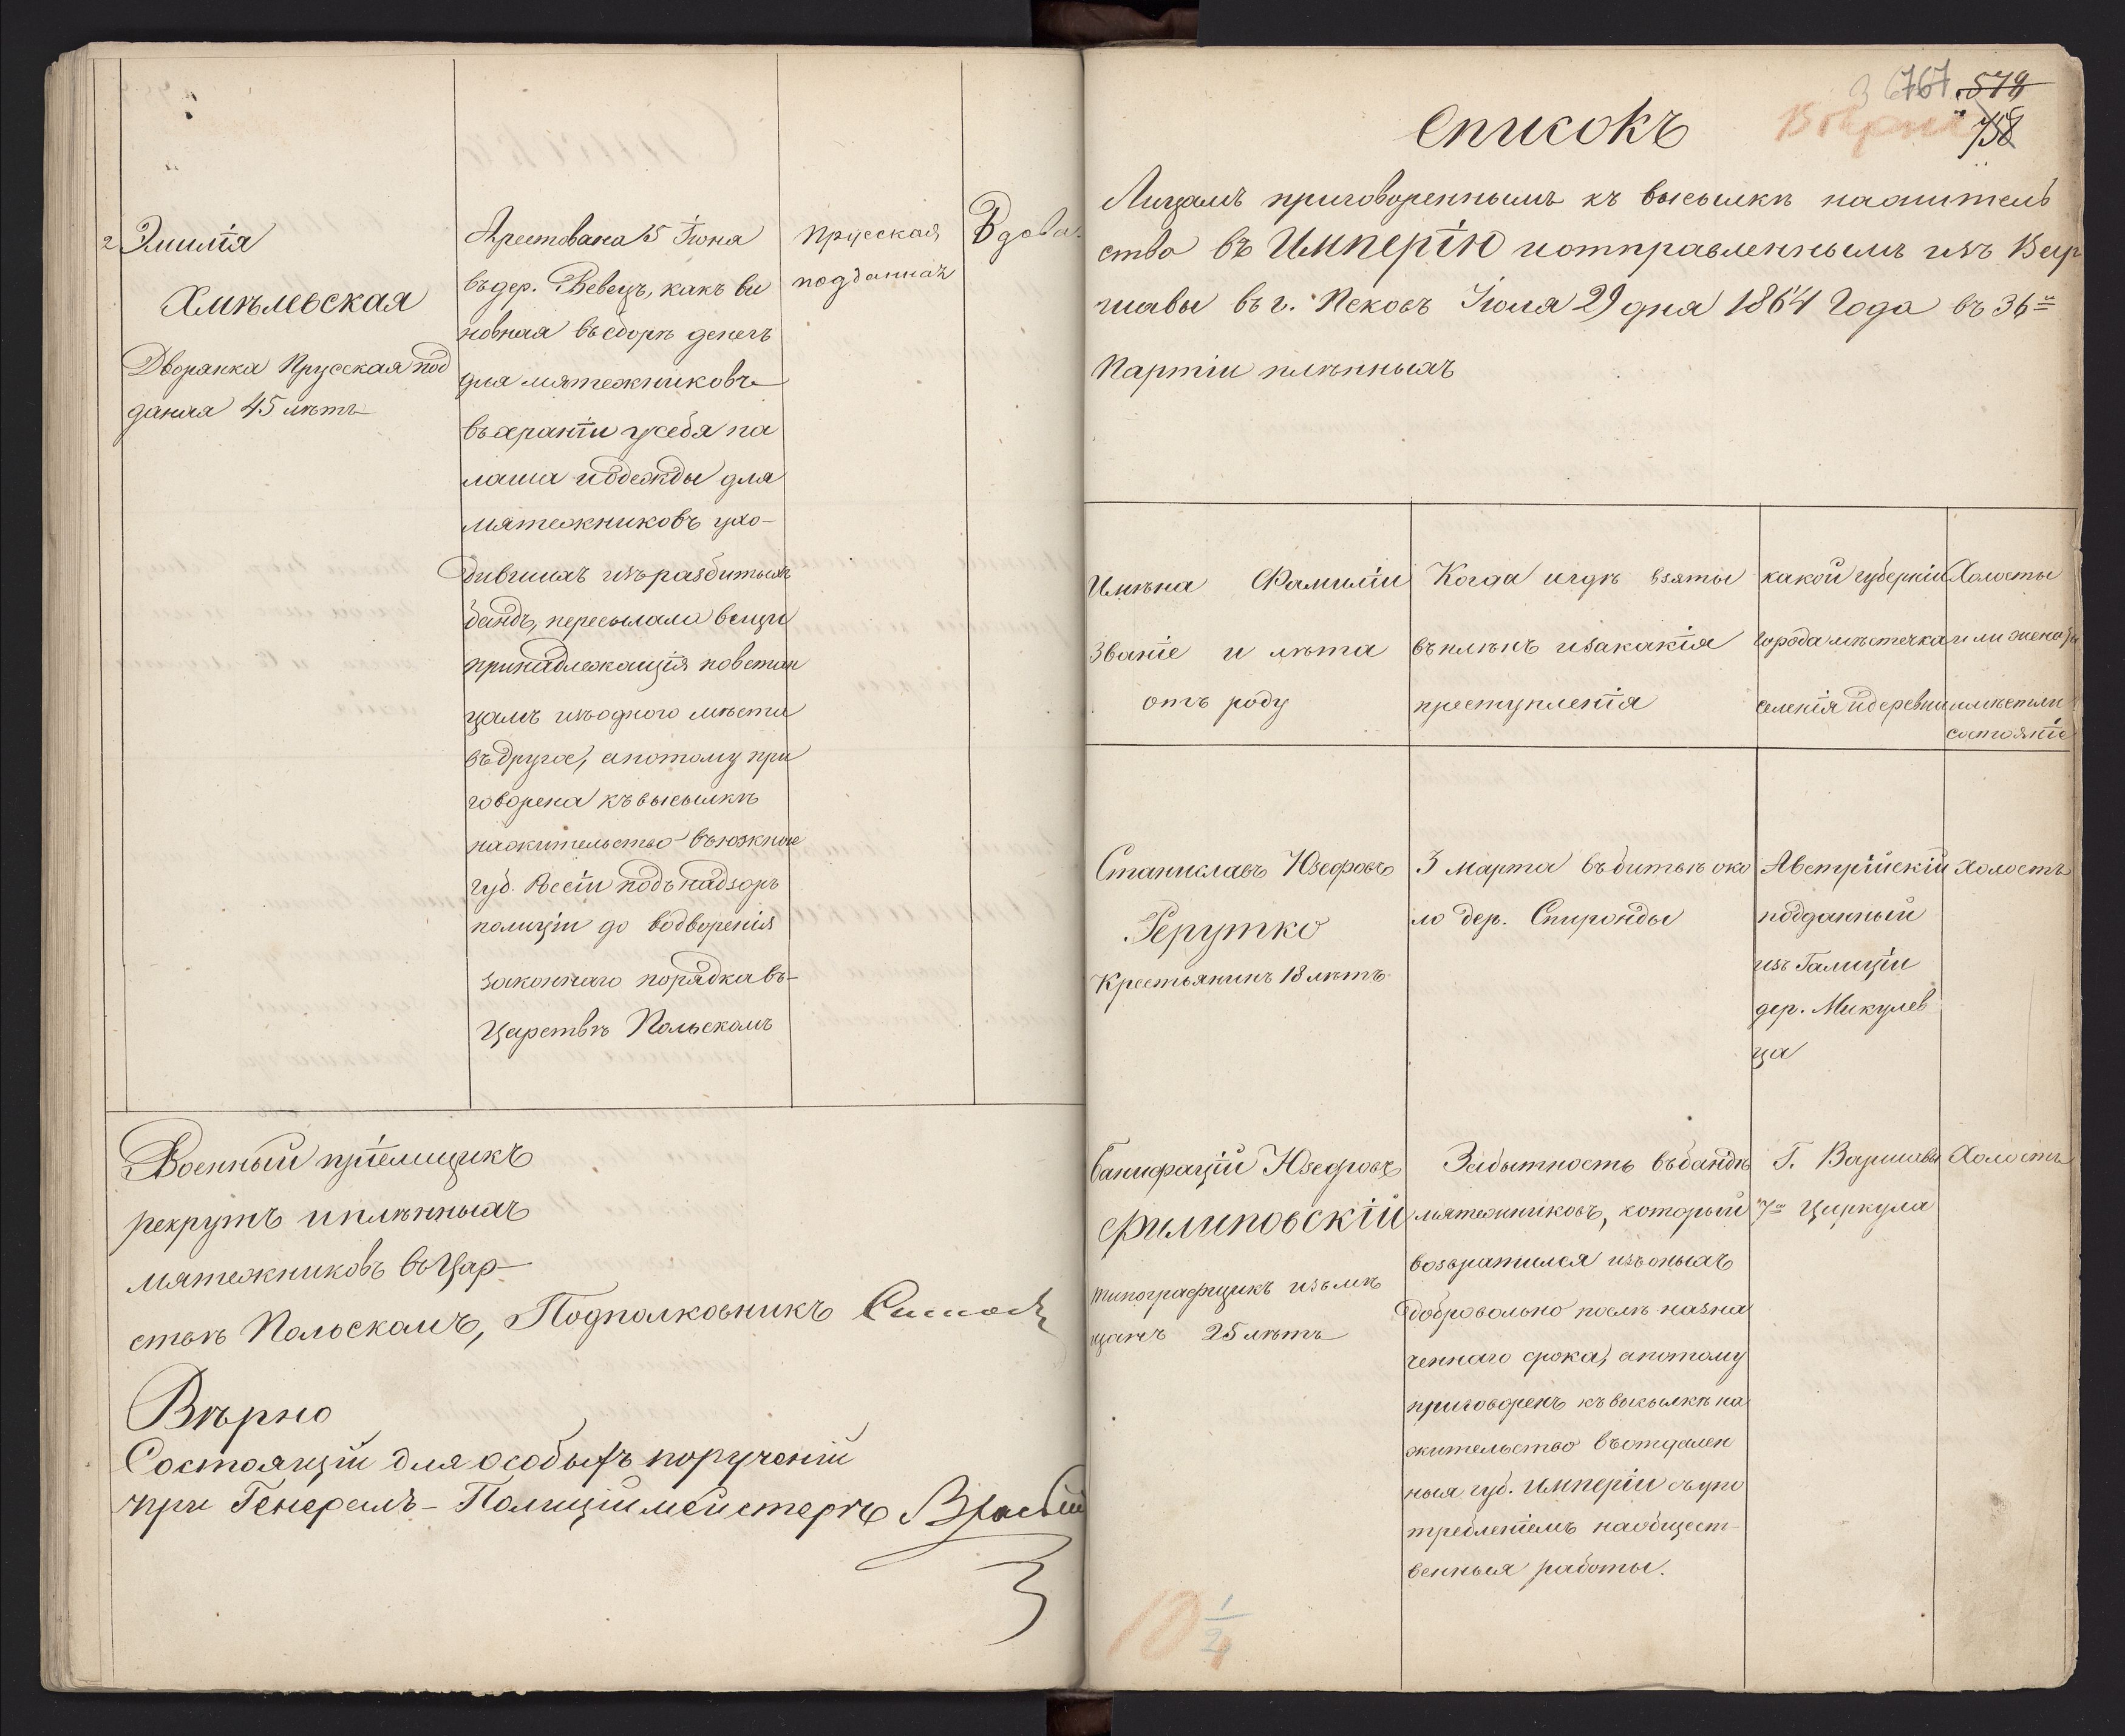 2 Эмилія
Хмѣлевская
Дворянка Прусская под
даная 45 лѣтъ
Арестована 15 Іюня
въ дер. Вевецъ, какъ ви
новная въ сборѣ денегъ
для мятежниковъ
въ храніи у себя па
лаша и одежды для
мятежниковъ ухо-
дившихъ изъ разбитыхъ
бандъ, пересылала вещи
принадлежащія повстан
цамъ изъ одного мѣста
въ другое, а потому при
говорена къ высылкѣ
на жительство въ южные
губ. Россіи подъ надзоръ
полиціи до водворенія
законнаго порядка въ-
Царствѣ Польскомъ
Прусская
подданная
Вдова.
Военный пріемщикъ
рекрутъ и плѣнныхъ
мятежниковъ въ Цар-
ствѣ Польскомъ, Подполковникъ
Вѣрно
Состоящій для особыхъ порученій
при Генералъ-Полиціймейстерѣ
767 579
758
Списокъ
Лицамъ приговореннымъ къ высылкѣ на житель
ство въ Имперію и отправленнымъ изъ Вар
шавы въ г. Псковъ Іюля 29 дня 1864 Года въ 36й
Партіи плѣнныхъ
Имѣна Фамиліи
Званіе и лѣта
отъ роду
Когда и гдѣ взяты
въ плѣнъ и за какія
преступленія
какой губерніи
города мѣстечка
селенія и деревни
Холосты
или женаты
и имѣютъ ли
состояніе
Станиславъ Юзефовъ
Рерутко
Крестьянинъ 18 лѣтъ
3 Марта въ битьвѣ око
ло дер. Спиронды
Австрійскій
подданный
изъ Галиціи
дер. Микулев
ца
Холостъ
Банифацій Юзефовъ
Филиповскій
типографщикъ изъ мѣ
щанъ 25 лѣтъ
За бытность въ бандѣ
мятежниковъ, который
возвратился изъ оныхъ
добровольно послѣ назна
ченнаго срока, а потому
приговоренъ къ высылкѣ на
жительство въ отдален
ныя губ. Имперіи съ упо
требленіемъ на общест-
венныя работы.
Г. Варшавы
7го Циркула
Холостъ
10 1/2